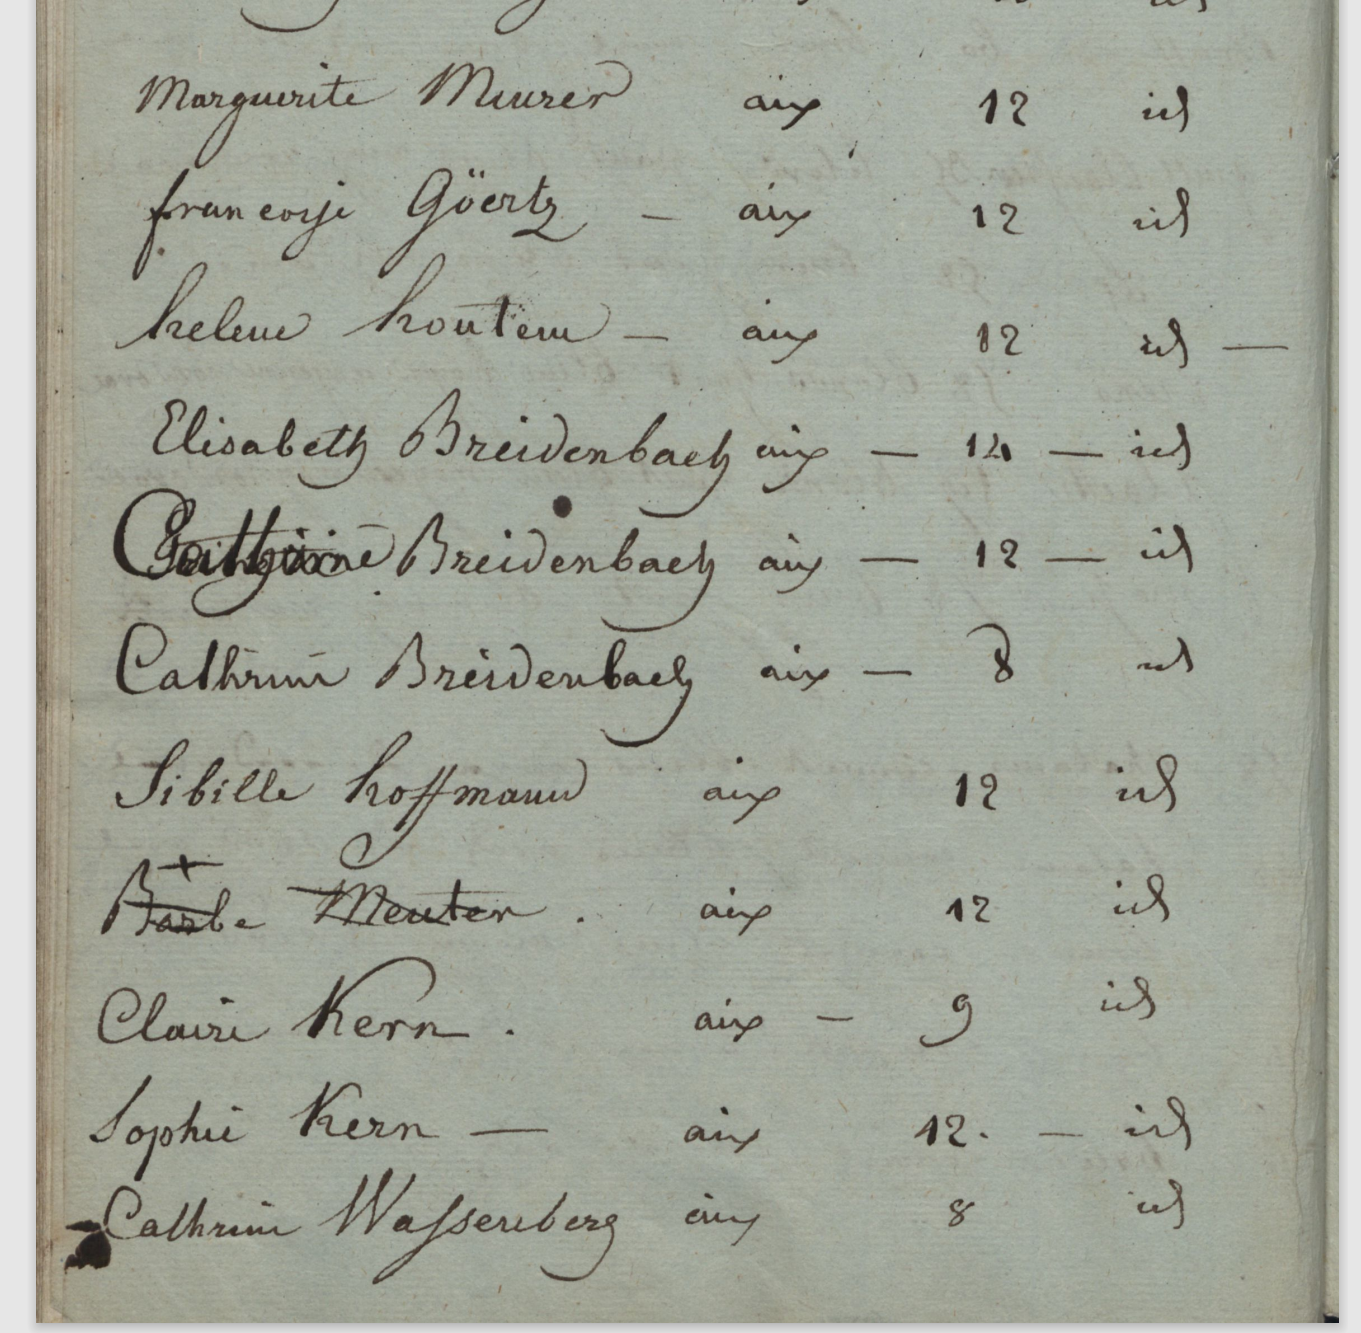 Marguerite Meurer aix 12 id
francoise Göertz — aix 12 id
helene houtem — aix 12 id —
Elisabeth Breidenbach aix — 14 — id
Breidenbach aix — 12 — id
Cathrine Breidenbach aix — 8 id
Sibille hoffmann aix 12 id
+
Barbe Meuter . aix 12 id
Claire Kern . aix — 9 id
Sophie Kern — aix 12. — id
Cathrine Wassenberg aix 8 id